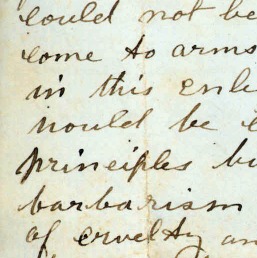 could not be
come to arms
in this enl
would be e
principles bu
barbarism
of cruelty an